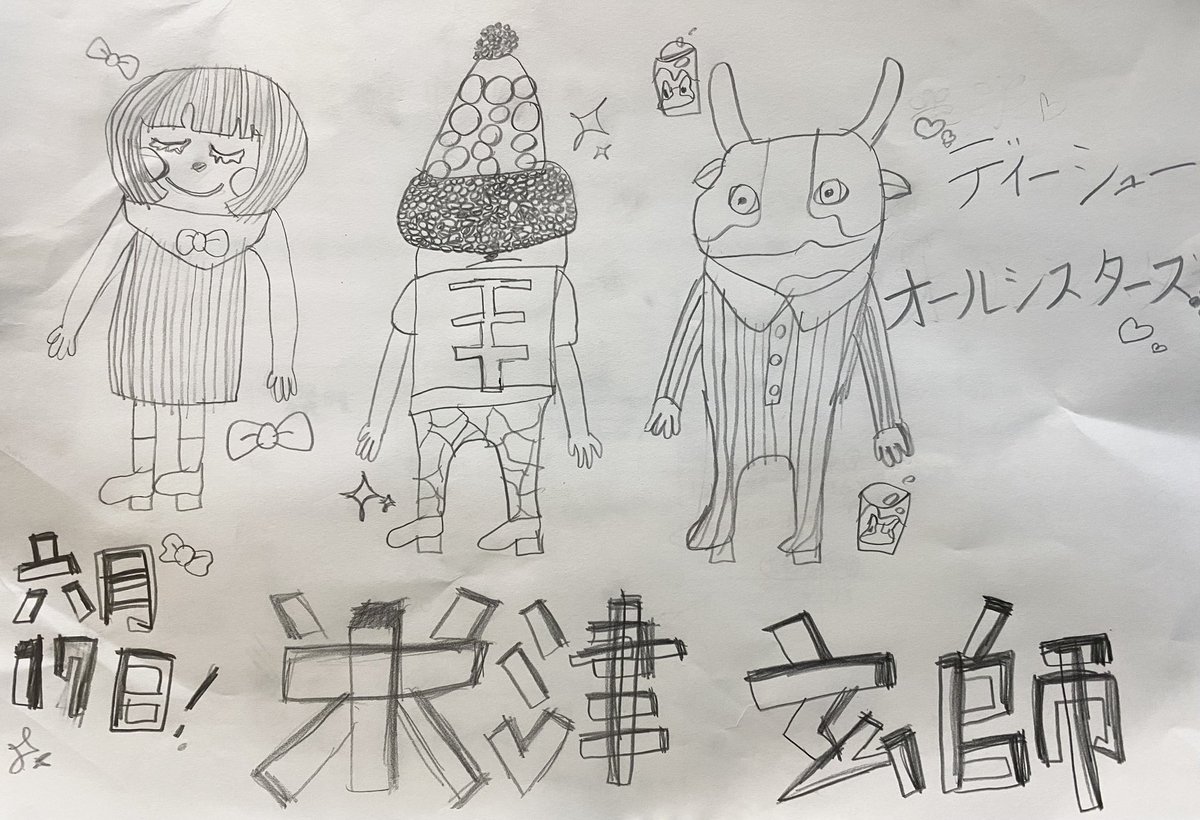 ディーシュー
オールシスターズ
六月
17日!
米津玄師